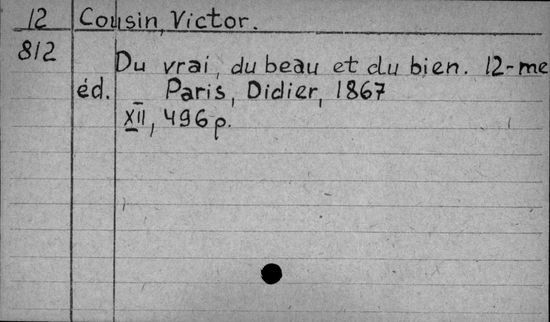 12 Cousin, Victor.
812
Du vrai, du beau et du bien. 12-me
éd. Paris, Didier, 1867
XII, 496 p.